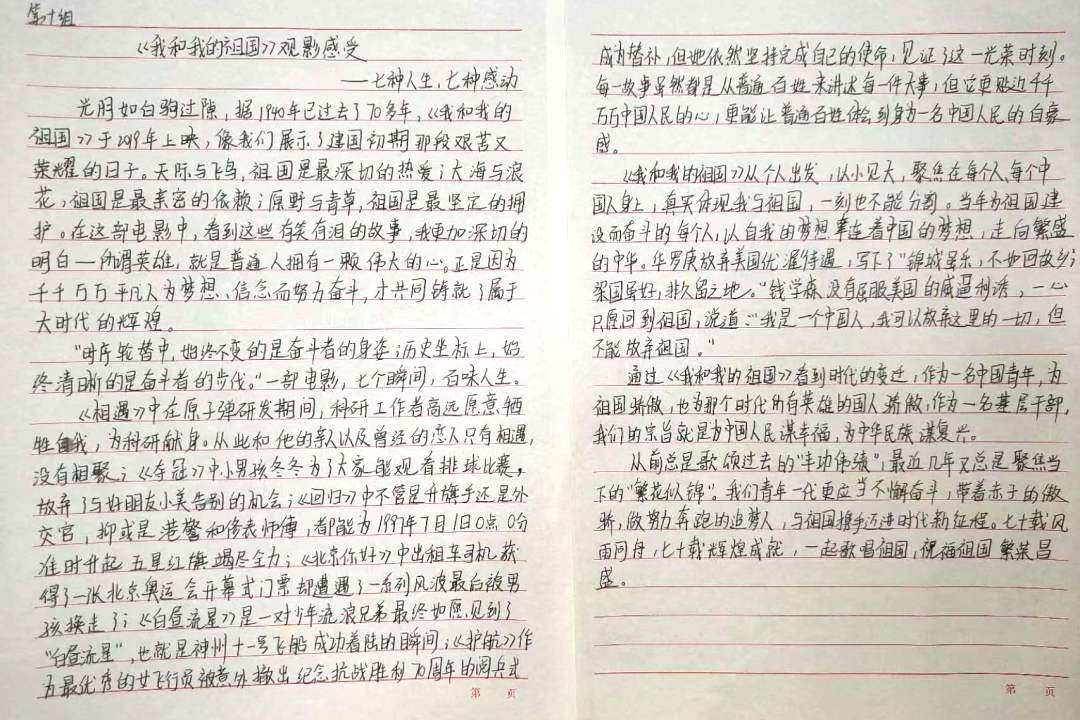 第十组
《我和我的祖国》观影感受
——七种人生,七种感动
光阴如白驹过隙,据1940年已过去了70多年,《我和我的
祖国》于2019年上映,像我们展示了建国初期那段艰苦又
荣耀的日子。天际与飞鸟,祖国是最深切的热爱;大海与浪
花,祖国是最亲密的依赖;原野与青草,祖国是最坚定的拥
护。在这部电影中,看到这些有笑有泪的故事,我更加深切的
明白一所谓英雄,就是普通人拥有一颗伟大的心。正是因为
千千万万平凡人为梦想、信念而努力奋斗,才共同铸就了属于
大时代的辉煌。
“时序轮替中,始终不变的是奋斗者的身姿;历史坐标上,始
终清晰的是奋斗者的步伐。”一部电影,七个瞬间,百味人生。
《相遇》中在原子弹研发期间,科研工作者高远愿意牺
牲自我,为科研献身。从此和他的亲人以及曾经的恋人只有相遇,
没有相聚;《夺冠》中小男孩冬冬为了大家能观看排球比赛,
放弃了与好朋友小美告别的机会;《回归》中不管是升旗手还是外
交官,抑或是港警和修表师傅,都能为1997年7月1日0点0分
准时升起五星红旗竭尽全力;《北京你好》中出租车司机获
得了一张北京奥运会开幕式门票却遭遇了一系列风波最后被男
孩换走了;《白昼流星》是一对少年流浪兄弟最终如愿见到了
“白昼流星”,也就是神州十一号飞船成功着陆的瞬间;《护航》作
为最优秀的女飞行员被意外撤出纪念抗战胜利70周年的阅兵式
第 页
成为替补,但她依然坚持完成自己的使命,见证了这一光荣时刻。
每一故事虽然都是从普通百姓来讲述每一件大事,但它更贴近千千
万万中国人民的心,更能让普通百姓体会到身为一名中国人民的自豪
感。
《我和我的祖国》从个人出发,以小见大,聚焦在每个人、每个中
国人身上,真实体现我与祖国,一刻也不能分割。当年为祖国建
设而奋斗的每个人,以自我的梦想牵连着中国的梦想,走向繁盛
的中华。华罗庚放弃美国优渥待遇,写下了“锦城虽乐,不如回故乡;
梁园虽好,非久留之地。”钱学森没有屈服美国的威逼利诱,一心
只愿回到祖国,说道:“我是一个中国人,我可以放弃这里的一切,但
不能放弃祖国。”
通过《我和我的祖国》看到时代的变迁,作为一名中国青年,为
祖国骄傲,也为那个时代所有英雄的国人骄傲,作为一名基层干部,
我们的宗旨就是为中国人民谋幸福,为中华民族谋复兴。
从前总是歌颂过去的“丰功伟绩”,最近几年又总是聚焦当
下的“繁花似锦”。我们青年一代更应当不懈奋斗,带着赤子的傲
骄,做努力奔跑的追梦人,与祖国携手迈进时代新征程。七十载风
雨同舟,七十载辉煌成就,一起歌唱祖国,祝福祖国繁荣昌
盛。
第 页